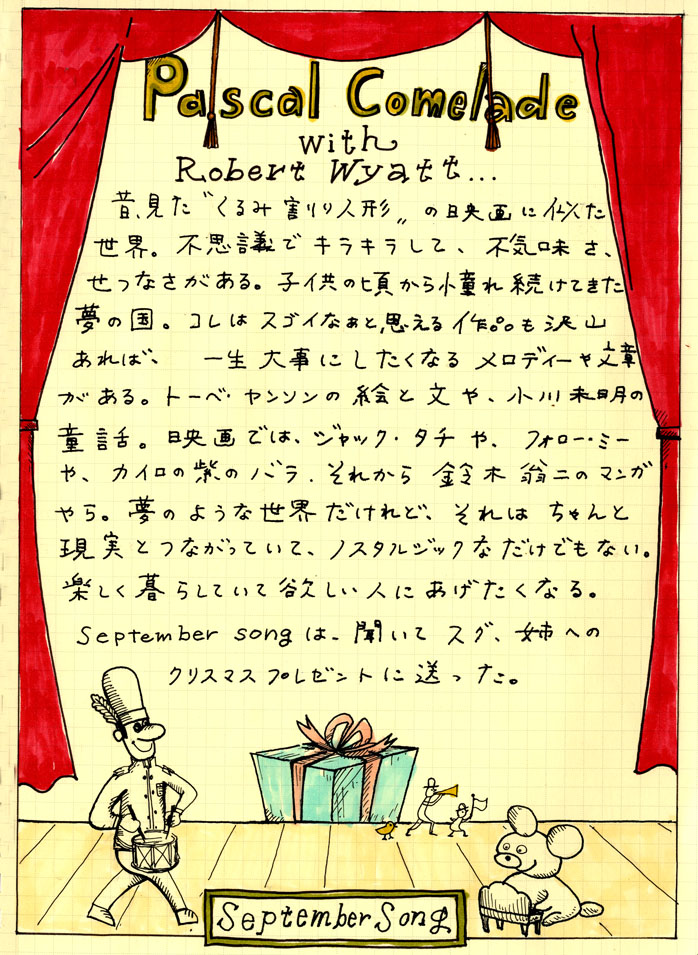 Pascal Comelade
with
Robert Wyatt...
昔、見た“くるみ割り人形„の映画に似た
世界。不思議でキラキラして、不気味さ、
せつなさがある。子供の頃から憧れ続けてきた
夢の国。コレはスゴイなぁと思える作品も沢山
あれば、一生大事にしたくなるメロディーや文章
がある。トーベ・ヤンソンの絵と文や、小川未明の
童話。映画では、ジャック・タチや、フォロー・ミー
や、カイロの紫のバラ.それから鈴木翁二のマンガ
やら。夢のような世界だけれど、それはちゃんと
現実とつながっていて、ノスタルジックなだけでもない。
楽しく暮らしていて欲しい人にあげたくなる。
September songは、聞いてスグ、姉への
クリスマスプレゼントに送った。
September Song